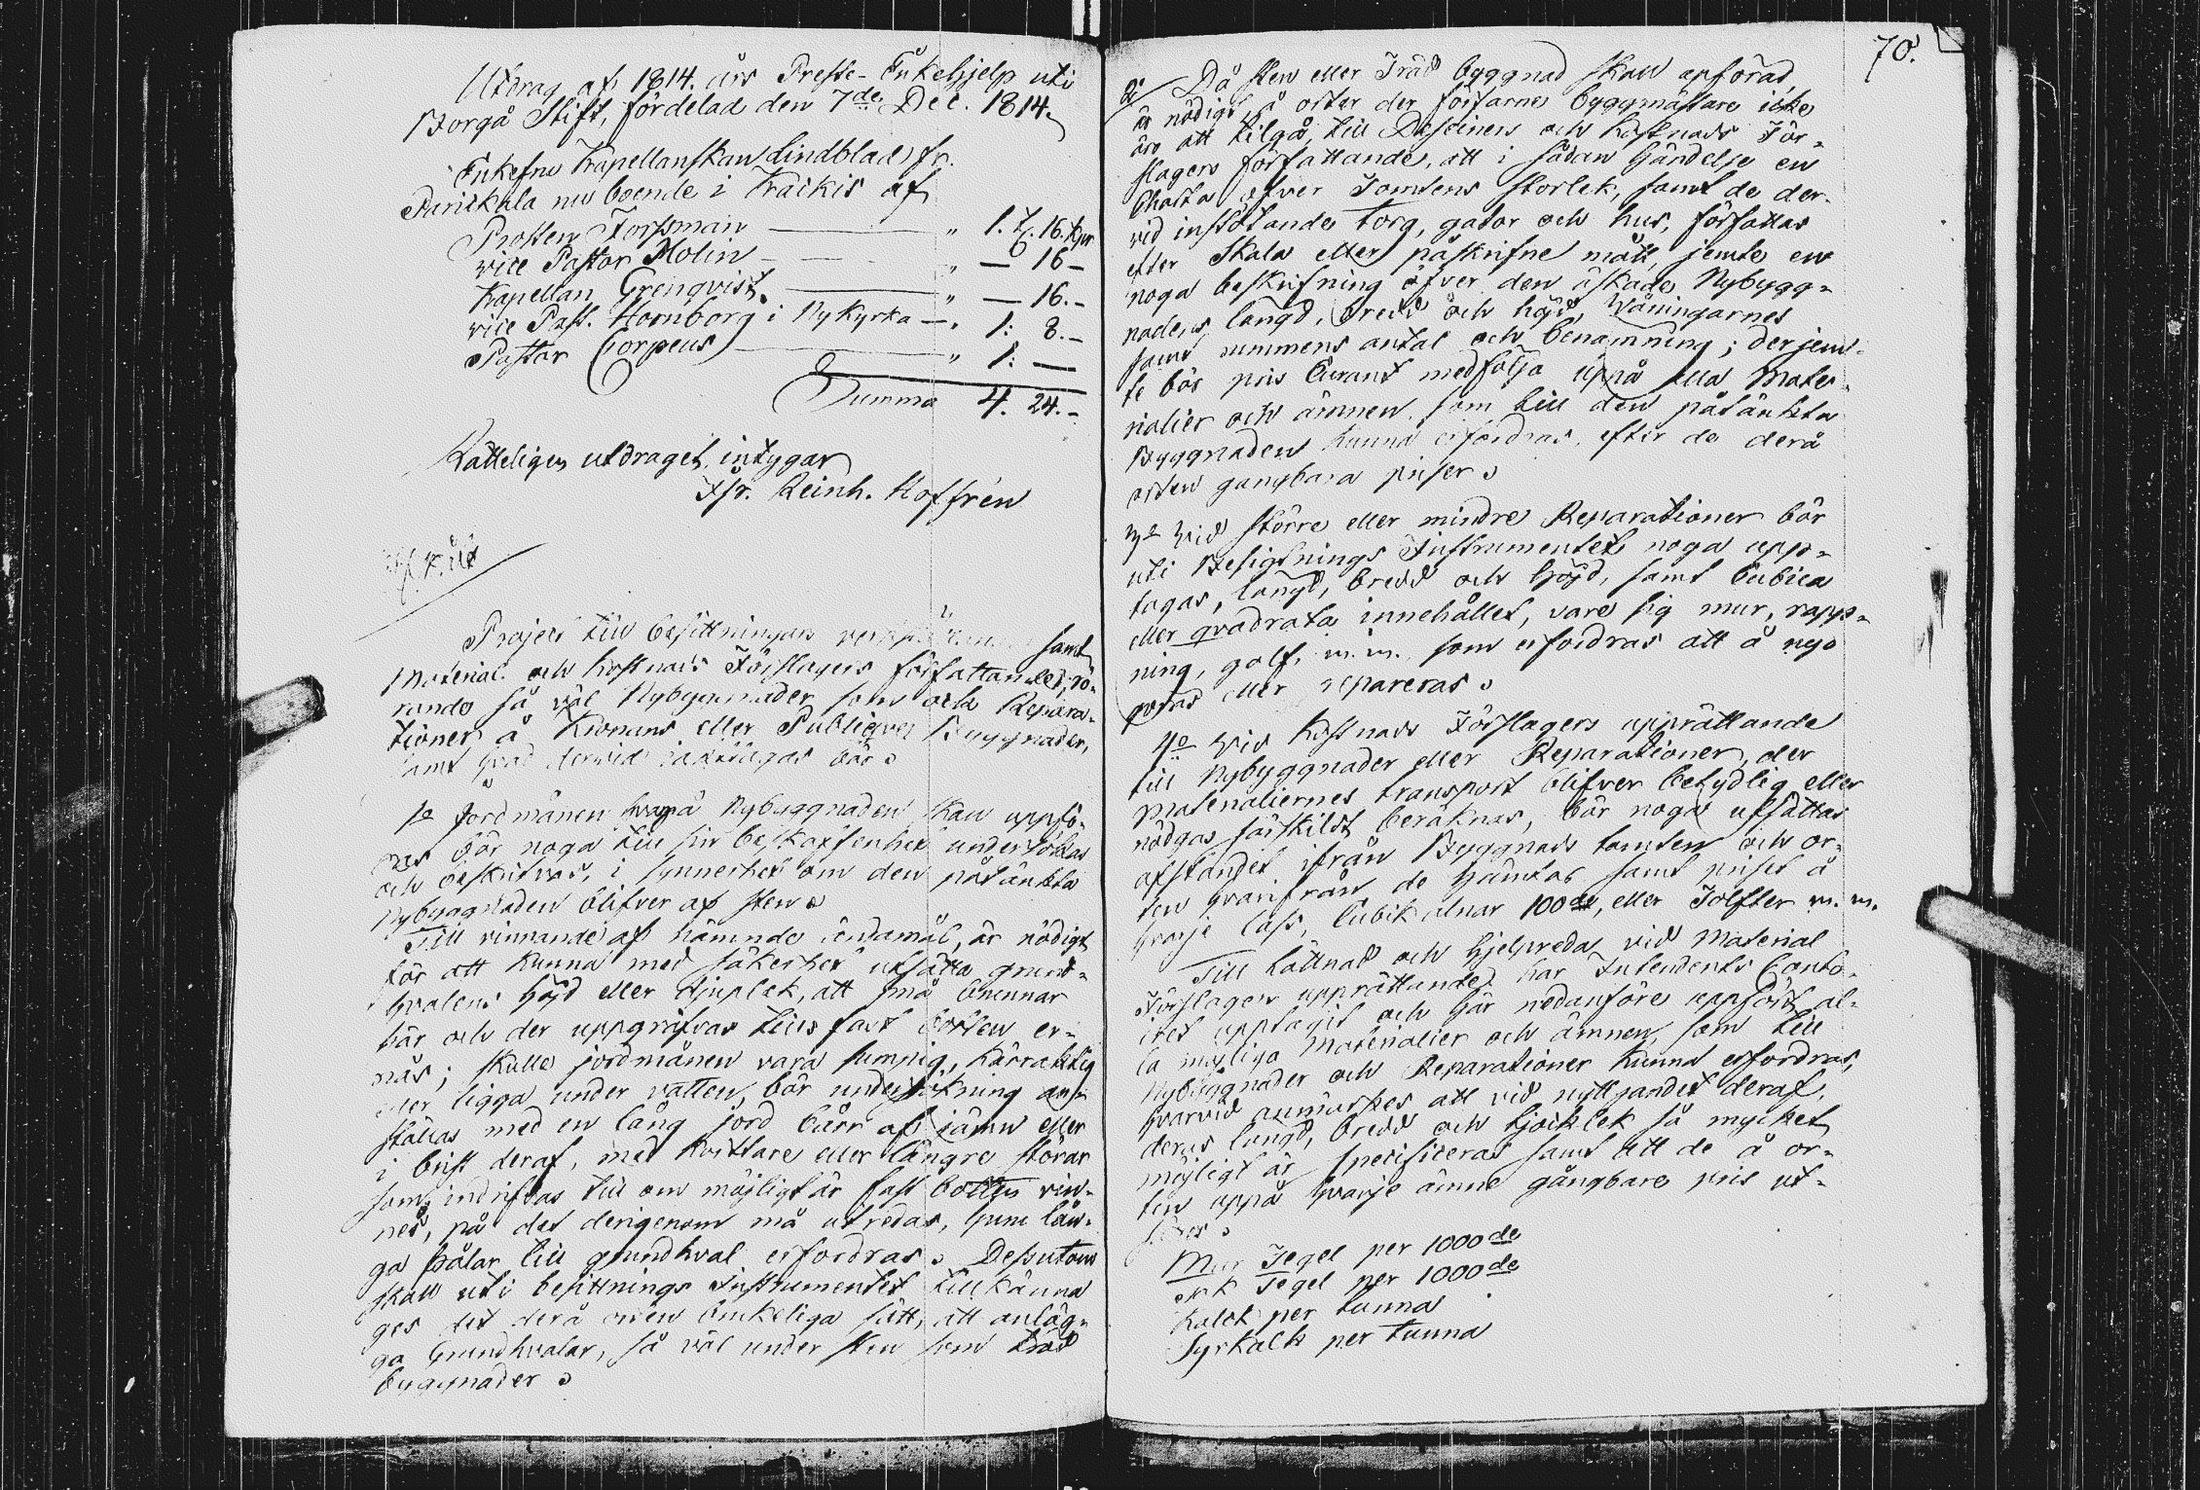 Utdrag af 1814. års Preste-Enkehjelp uti
Borgå Stift, fördelad den 7de Dec. 1814.
Enkefru Kapellanskan Lindblad fr.
Parikkala nu boende i Kräikis af
Prosten Forssman — " 1. T. 16. kpr
vice Pastor Molin — " — 16 —
Kapellan Grenqvist — " — 16. —
vice Past. Hornborg i Nykyrka — " 1: 8. —
Pastor Corpeus — " 1: —
Summa 4. 24. —
Rätteligen utdraget, intygar
Isr. Reinh. Hoffrén
Project till besittningars samt
Material och kostnads Förslagers författande, rö-
rande så väl Nybyggnader som ock Repara-
tioner å Kronans eller Publique Byggnader,
samt hvad dervid iakttagas bör.
1o Jordmånen hvarpå Nybyggnaden skall uppfö-
ras bör noga till sin beskaffenhet undersökas
och beskrifvas, i synnerhet om den påtänkta
Nybyggnaden blifver af sten.
Till vinnande af nämnde ändamål, är nödigt
för att kunna med säkerhet utsätta grund-
hvalens höjd eller djuplek, att små brunnar
här och der uppgräfvas tills fast botten er-
nås; skulle jordmånen vara sumpig, kärraktig
eller ligga under vatten, bör undersökning an-
ställas med en lång jord bårr af järn eller
i brist deraf, med kortare eller längre störar
som indrifvas till om möjligt är fast botten vin-
nes, på det derigenom må utredas, huru lån-
ga pålar till grundhval erfordras. Dessutom
skall uti besittnings Instrumentet tillkänna
ges det derå orten brukeliga sätt, att anläg-
ga Grundhvalar, så väl under sten som träd
byggnader.
70.
2o Då sten eller Träd byggnad skall anföras,
är nödigt, å orter der förfarne byggmästare icke
äro att tilgå, till Desseiners och kostnads För-
slagers författande, att i sådan händelse en
Charta öfver Tomtens storlek, samt de der-
vid instötande torg, gator och hus, författas
efter Skala eller påskrifne mått, jemte en
noga beskrifning öfver den åskade Nybygg-
nadens längd, bredd och höjd, Våningarnes
samt rummens antal och benämning; derjem-
te bör pris Curant medfölja uppå alla Mate-
rialier och ämnen som till den påtänkta
Byggnaden kunna erfordras, efter de derå
orten gangbara priser.
3o Vid större eller mindre Reparationer bör
uti Besigtnings Instrumentet noga upp-
tagas, längd, bredd och höjd, samt Cubica
eller qvadrata innehållet, vare sig mur, rapp-
ning, golf, m. m. som erfordras att å nyo
göras eller repareras.
4o Vid Kostnads Förslagers upprättande
till Nybyggnader eller Reparationer, der
Materialiernes transport blifver betydlig eller
nödgas särskildt beräknas, bör noga utsättas
afståndet ifrån Byggnads tomten och or-
ten hvarifrån de hämtas samt priset å
hvarje lass, Cubik alnar 100de, eller Tolfter m. m.
Till lättnad och hjelpreda vid Material
Förslagers upprättande har Intendents Conto-
iret upptagit och här nedanföre uppfört al-
la möjliga Materialier och ämnen, som till
Nybyggnader och Reparationer kunna erfordras,
hvarvid anmärkes att vid nyttjandet deraf,
deras längd, bredd och tjocklek så mycket
möjligt är specificeras samt att de å or-
ten uppå hvarje ämne gångbare pris ut-
sättes.
Mur Tegel per 1000de
Tak Tegel per 1000de
Kalck per tunna
Tyrkalk per tunna